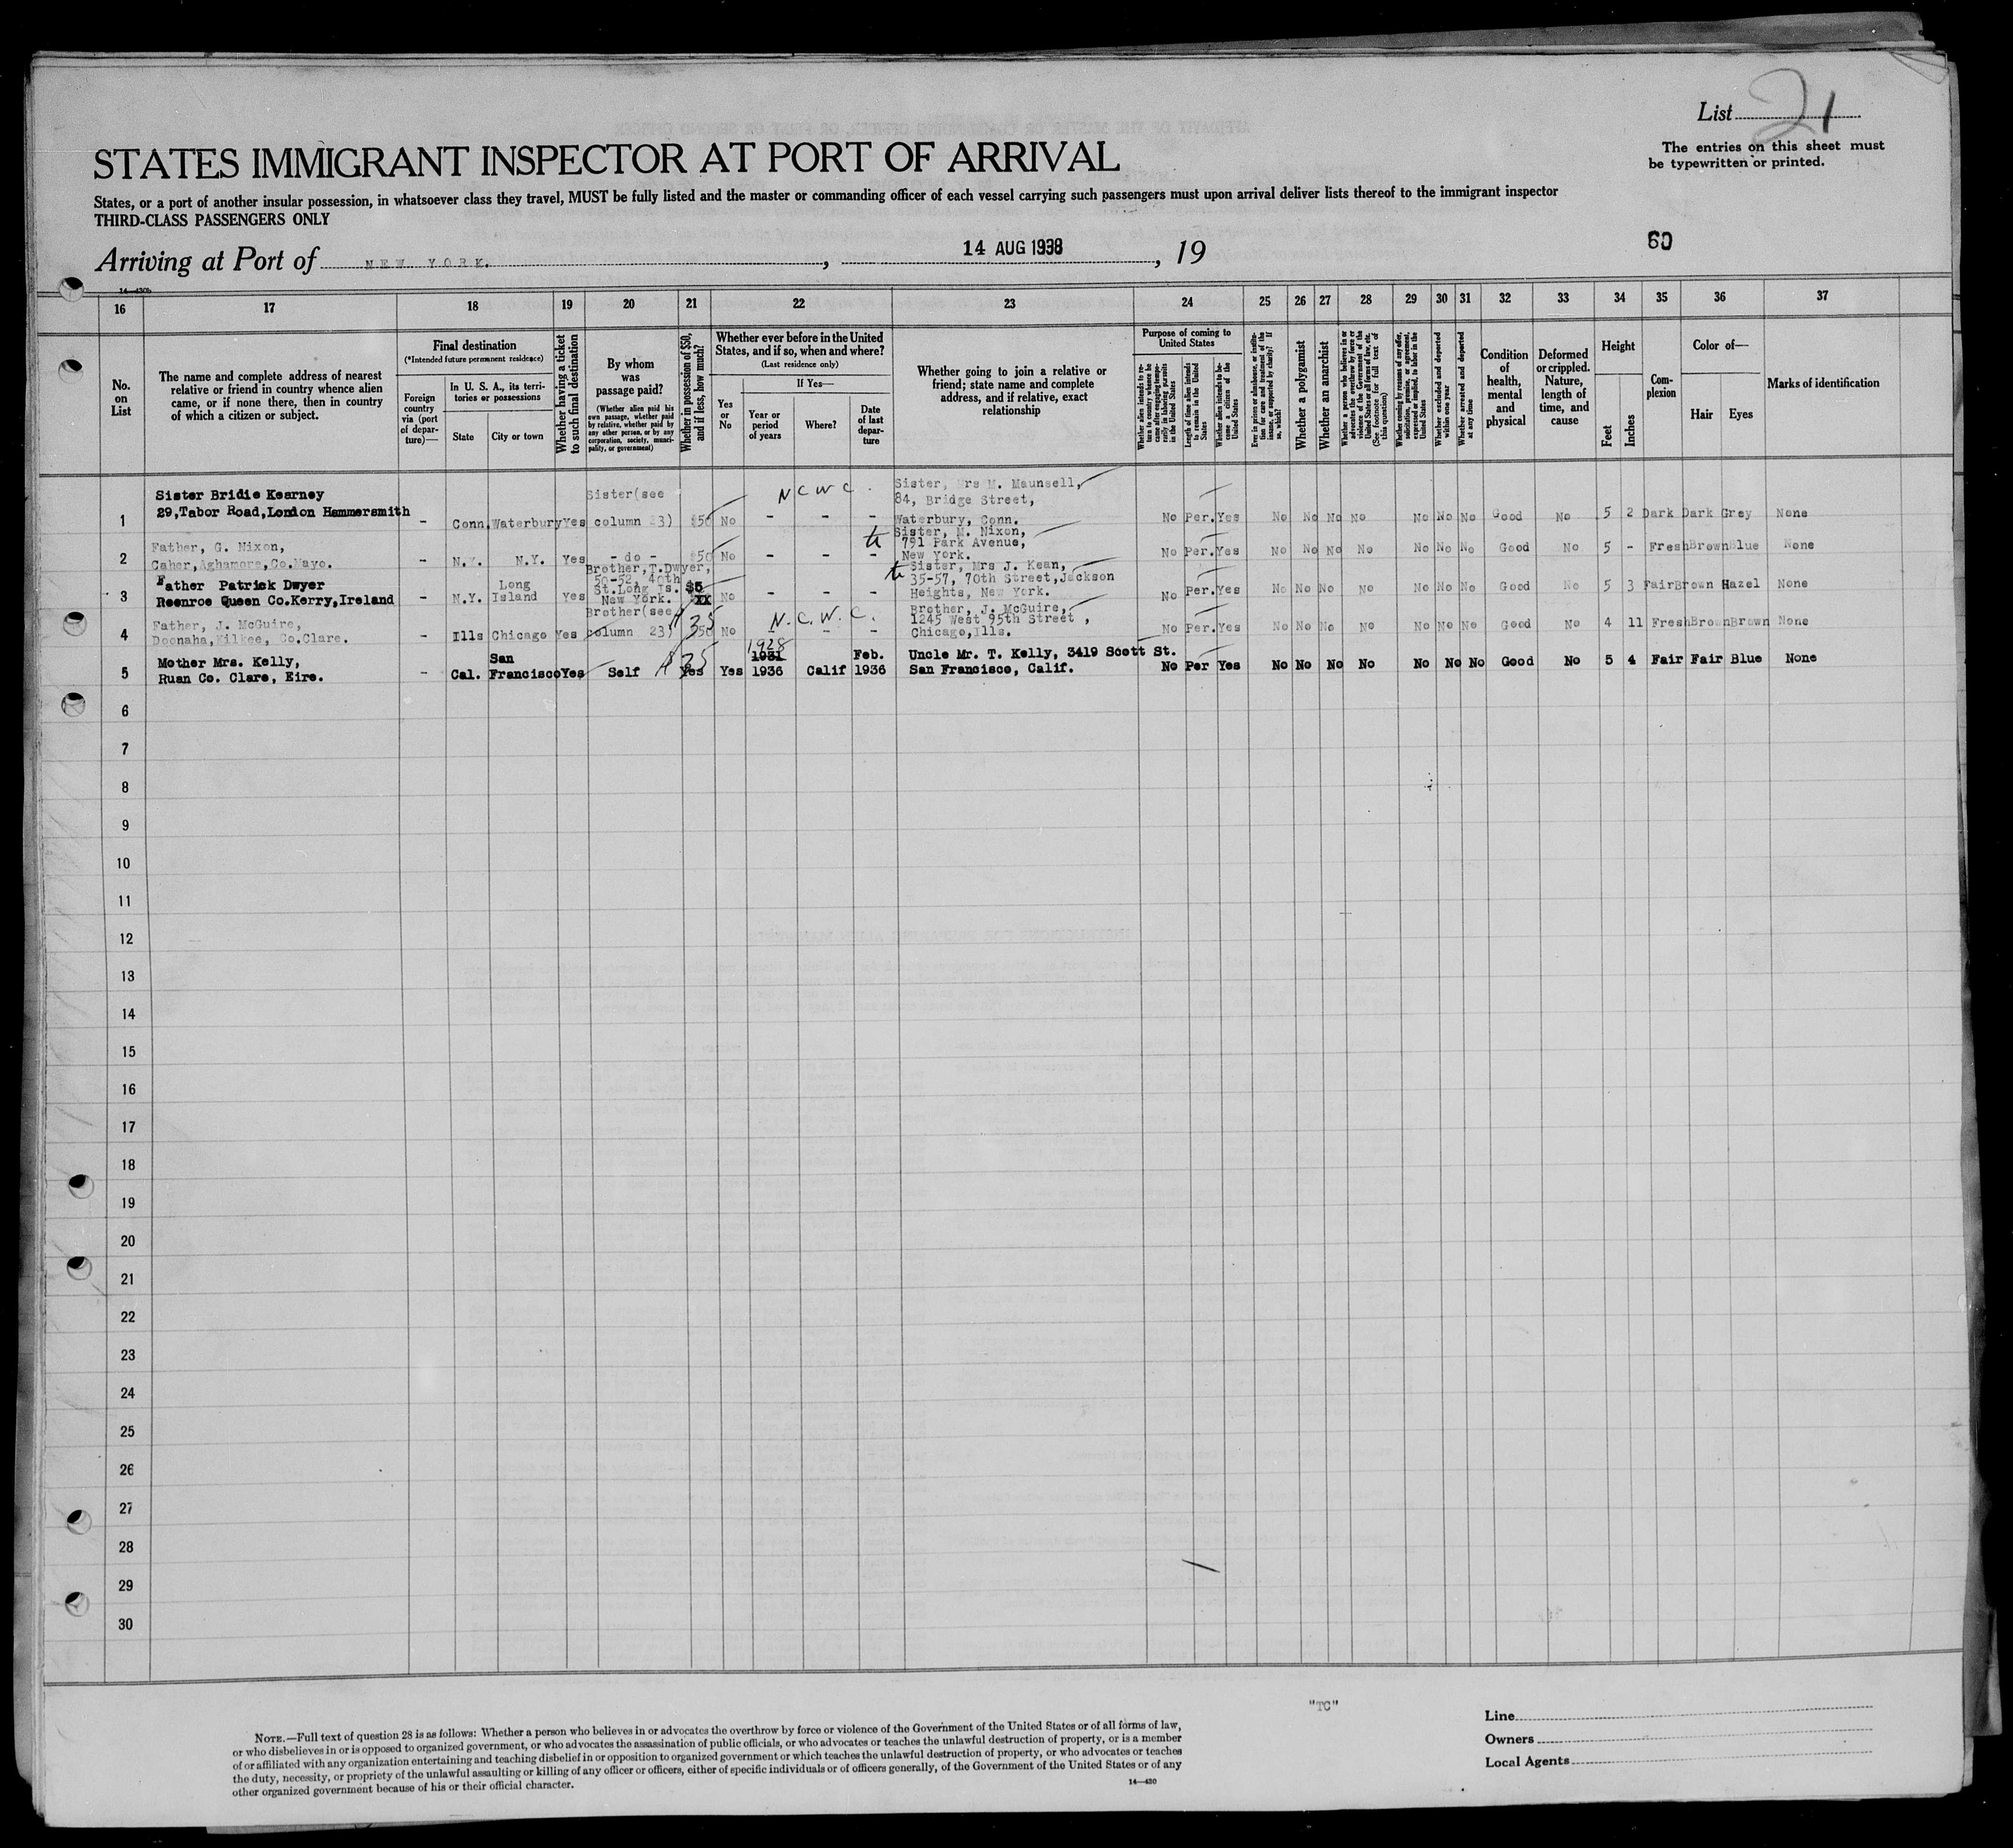 List 21
The entries on this sheet must
be typewritten or printed.
STATES IMMIGRANT INSPECTOR AT PORT OF ARRIVAL
States, or a port of another insular possession, in whatsoever class they travel, MUST be fully listed and the master or commanding officer of each vessel carrying such passengers must upon arrival deliver lists thereof to the immigrant inspector
THIRD-CLASS PASSENGERS ONLY
Arriving at Port of NEW YORK. , 14 AUG 1938 , 19
60
14—430b
16 17 18 19 20 21 22 23 24 25 26 27 28 29 30 31 32 33 34 35 36 37
No. on List
The name and complete address of nearest relative or friend in country whence alien came, or if none there, then in country of which a citizen or subject.
Final destination
(*Intended future permanent residence)
Foreign country via (port of departure)—
In U. S. A., its territories or possessions
State
City or town
Whether having a ticket to such final destination
By whom was passage paid?
(Whether alien paid his own passage, whether paid by relative, whether paid by any other person, or by any corporation, society, municipality, or government)
Whether in possession of $50, and if less, how much?
Whether ever before in the United States, and if so, when and where?
(Last residence only)
Yes or No
If Yes—
Year or period of years
Where?
Date of last departure
Whether going to join a relative or friend; state name and complete address, and if relative, exact relationship
Purpose of coming to United States
Whether alien intends to return to country whence he came after engaging temporarily in laboring pursuits in the United States
Length of time alien intends to remain in the United States
Whether alien intends to become a citizen of the United States
Ever in prison or almshouse, or institution for care and treatment of the insane, or supported by charity? If so, which?
Whether a polygamist
Whether an anarchist
Whether a person who believes in or advocates the overthrow by force or violence of the Government of the United States or all forms of law, etc. (See footnote for full text of this question)
Whether coming by reason of any offer, solicitation, promise, or agreement, expressed or implied, to labor in the United States
Whether excluded and deported within one year
Whether arrested and deported at any time
Condition of health, mental and physical
Deformed or crippled. Nature, length of time, and cause
Height
Feet
Inches
Complexion
Color of—
Hair
Eyes
Marks of identification
1 Sister Bridie Kearney
29,Tabor Road,London Hammersmith
- Conn. Waterbury Yes Sister(see column 23) $50 No - - - N C W C.
Sister, Mrs M. Maunsell,
84, Bridge Street,
Waterbury, Conn.
No Per. Yes No No No No No No No Good No 5 2 Dark Dark Grey None
2 Father, G. Nixon,
Caher,Aghamore,Co.Mayo.
- N.Y. N.Y. Yes - do - $50 No - - -
Sister, M. Nixon,
791 Park Avenue,
New York.
No Per. Yes No No No No No No No Good No 5 - Fresh Brown Blue None
3 Father Patrick Dwyer
Reenroe Queen Co.Kerry,Ireland
- N.Y. Long Island Yes
Brother,T.Dwyer,
50-52, 40th
St.Long Is.
New York.
$5 XX No - - -
Sister, Mrs J. Kean,
35-57, 70th Street,Jackson
Heights, New York.
No Per. Yes No No No No No No No Good No 5 3 Fair Brown Hazel None
4 Father, J. McGuire,
Doonaha,Kilkee, Co.Clare.
- Ills Chicago Yes Brother(see column 23) $50 $35 No - - - N.C.W.C.
Brother, J. McGuire,
1245 West 95th Street ,
Chicago,Ills.
No Per. Yes No No No No No No No Good No 4 11 Fresh Brown Brown None
5 Mother Mrs. Kelly,
Ruan Co. Clare, Eire.
- Cal. San Francisco Yes Self $35 Yes Yes 1928 1931 1936 Calif Feb. 1936
Uncle Mr. T. Kelly, 3419 Scott St.
San Francisco, Calif.
No Per Yes No No No No No No No Good No 5 4 Fair Fair Blue None
6
7
8
9
10
11
12
13
14
15
16
17
18
19
20
21
22
23
24
25
26
27
28
29
30
"TC"
NOTE.—Full text of question 28 is as follows: Whether a person who believes in or advocates the overthrow by force or violence of the Government of the United States or of all forms of law,
or who disbelieves in or is opposed to organized government, or who advocates the assassination of public officials, or who advocates or teaches the unlawful destruction of property, or is a member
of or affiliated with any organization entertaining and teaching disbelief in or opposition to organized government or which teaches the unlawful destruction of property, or who advocates or teaches
the duty, necessity, or propriety of the unlawful assaulting or killing of any officer or officers, either of specific individuals or of officers generally, of the Government of the United States or of any
other organized government because of his or their official character.
14—430
Line
Owners
Local Agents